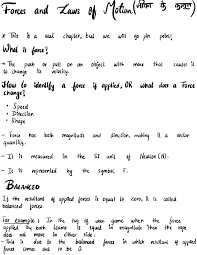 Forces and Laws of Motion (गति के नियम)
* This is a vast chapter, but we will go pin point
What is force?
→ The push or pull on an object with mass that causes it
to change its velocity.
How to identify a force if applied, OR what does a force
change?
• Speed
• Direction
• Shape
- Force has both magnitude and direction, making it a vector
quantity.
- It is measured in the SI unit of Newton (N).
- It is represented by the symbol, F.
BALANCED
If the resultant of applied forces is equal to zero, it is called
balanced forces.
For example: In the tug of war game when the force
applied by both teams is equal in magnitude then the rope
does not move to either side.
- This is due to the balanced forces in which resultant of applied
forces comes out to be 0.